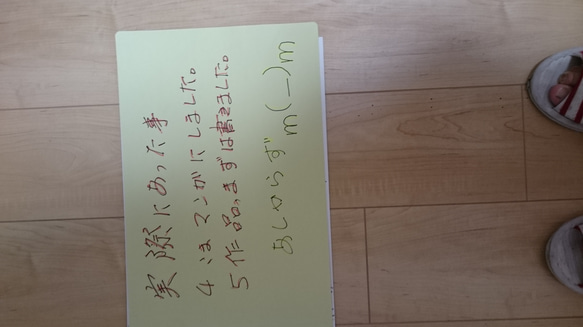 実際にあった事
4はマンガにしました。
5作品、まずは書きました。
あしからずm(_)m